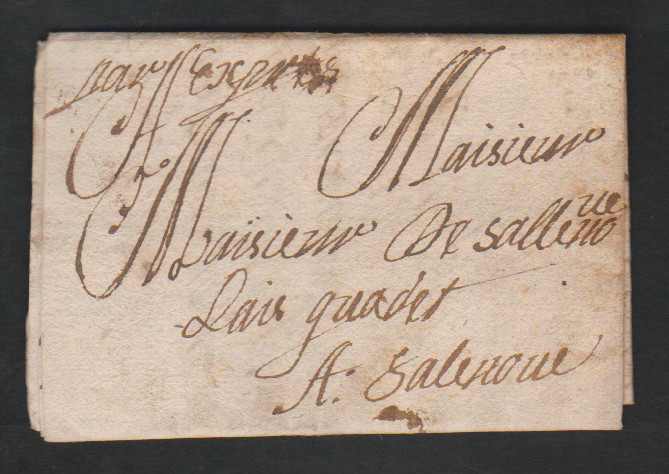 par Exprés
Maisieur
Maisieur De Sallenoue
Lais guadet
A. Salenoue